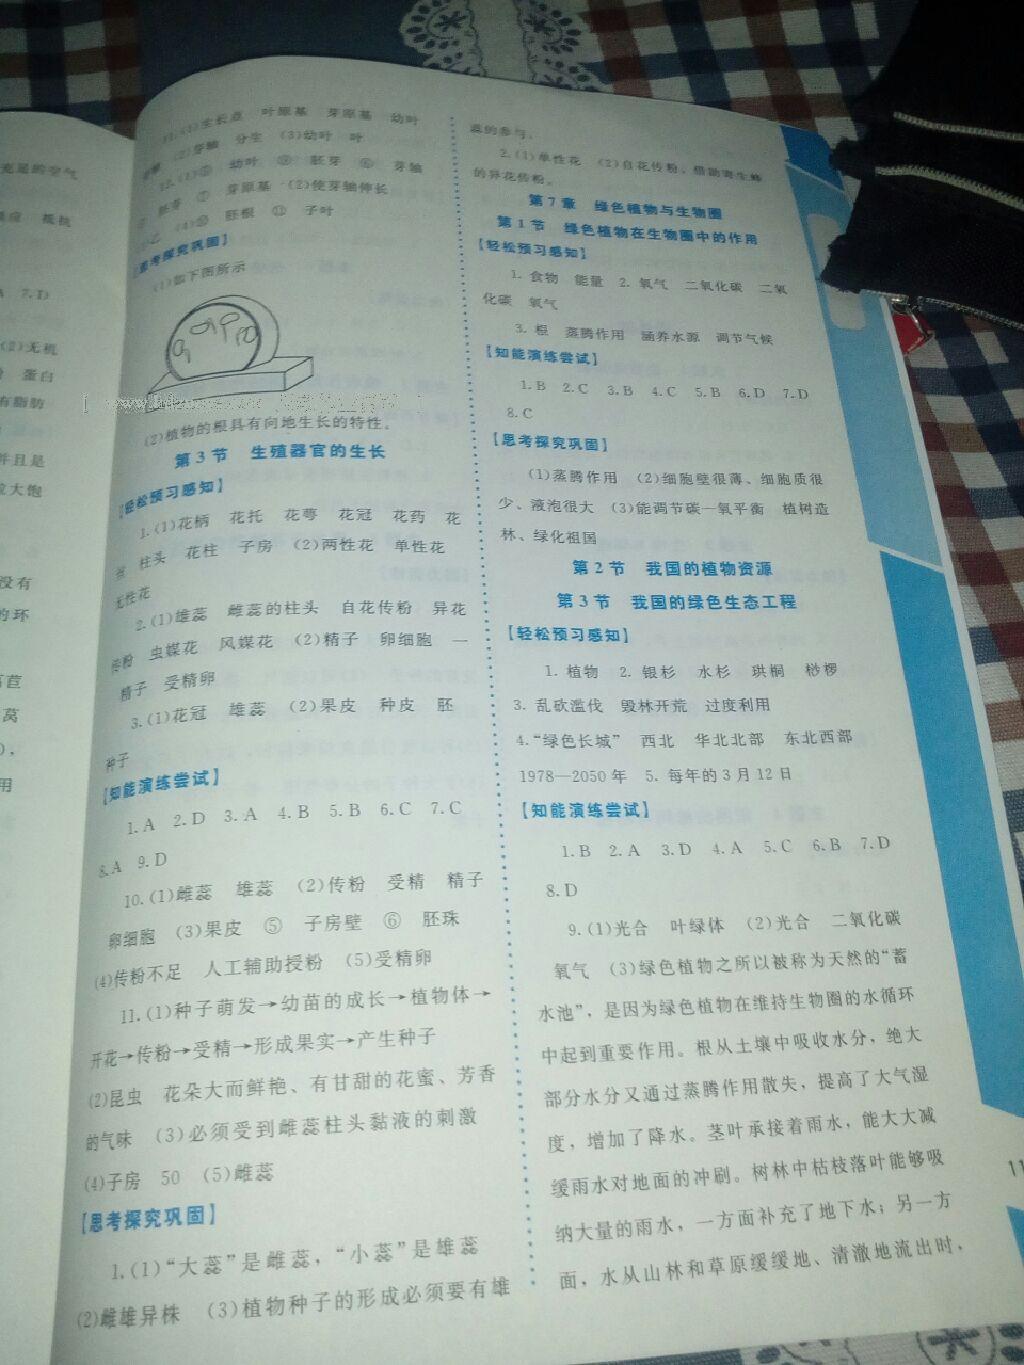 充足的空气
抵抗
7.D
(2)无机
蛋白
有脂肪
并且是
大饱
没有
的环
莴苣
莴
用
11.(1)生长点 叶原基 芽原基 幼叶
(2)芽轴 分生 (3)幼叶 叶
12.(1)③ 幼叶 ⑨ 胚芽 ⑥ 芽轴
⑦ 芽原基 (2)使芽轴伸长
乙 (4)⑩ 胚根 ⑪ 子叶
【思考探究巩固】
(1)如下图所示
(2)植物的根具有向地生长的特性。
第3节 生殖器官的生长
【轻松预习感知】
1.(1)花柄 花托 花萼 花冠 花药 花
丝 柱头 花柱 子房 (2)两性花 单性花
无性花
2.(1)雄蕊 雌蕊的柱头 自花传粉 异花
传粉 虫媒花 风媒花 (2)精子 卵细胞 一
精子 受精卵
3.(1)花冠 雄蕊 (2)果皮 种皮 胚
种子
【知能演练尝试】
1.A 2.D 3.A 4.B 5.B 6.C 7.C
8.A 9.D
10.(1)雌蕊 雄蕊 (2)传粉 受精 精子
卵细胞 (3)果皮 ⑤ 子房壁 ⑥ 胚珠
(4)传粉不足 人工辅助授粉 (5)受精卵
11.(1)种子萌发→幼苗的成长→植物体→
开花→传粉→受精→形成果实→产生种子
(2)昆虫 花朵大而鲜艳、有甘甜的花蜜、芳香
的气味 (3)必须受到雌蕊柱头黏液的刺激
(4)子房 50 (5)雌蕊
【思考探究巩固】
1.(1)“大蕊”是雌蕊，“小蕊”是雄蕊
(2)雌雄异株 (3)植物种子的形成必须要有雄
蕊的参与。
2.(1)单性花 (2)自花传粉，借助寄生蜂
的异花传粉。
第7章 绿色植物与生物圈
第1节 绿色植物在生物圈中的作用
【轻松预习感知】
1. 食物 能量 2. 氧气 二氧化碳 二氧
化碳 氧气
3. 根 蒸腾作用 涵养水源 调节气候
【知能演练尝试】
1.B 2.C 3.B 4.C 5.B 6.D 7.D
8.C
【思考探究巩固】
(1)蒸腾作用 (2)细胞壁很薄、细胞质很
少、液泡很大 (3)能调节碳—氧平衡 植树造
林、绿化祖国
第2节 我国的植物资源
第3节 我国的绿色生态工程
【轻松预习感知】
1. 植物 2. 银杉 水杉 珙桐 桫椤
3. 乱砍滥伐 毁林开荒 过度利用
4.“绿色长城” 西北 华北北部 东北西部
1978—2050年 5. 每年的3月12日
【知能演练尝试】
1.B 2.A 3.D 4.A 5.C 6.B 7.D
8.D
9.(1)光合 叶绿体 (2)光合 二氧化碳
氧气 (3)绿色植物之所以被称为天然的“蓄
水池”，是因为绿色植物在维持生物圈的水循环
中起到重要作用。根从土壤中吸收水分，绝大
部分水分又通过蒸腾作用散失，提高了大气湿
度，增加了降水。茎叶承接着雨水，能大大减
缓雨水对地面的冲刷。树林中枯枝落叶能够吸
纳大量的雨水，一方面补充了地下水；另一方
面，水从山林和草原缓缓地、清澈地流出时，
11